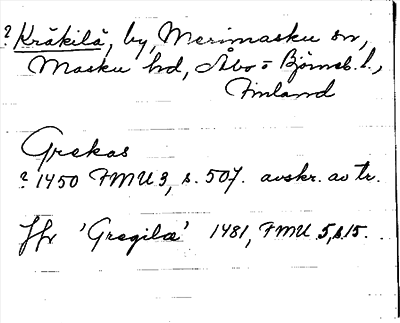 ? Kräkilä, by, Merimasku sn,
Masku hd, Åbo- Björneb. l.,
Finland
Grekas
? 1450 FMU 3, s. 507. avskr. av tr.
Jfr 'Gregilæ' 1481, FMU 5, s. 15.